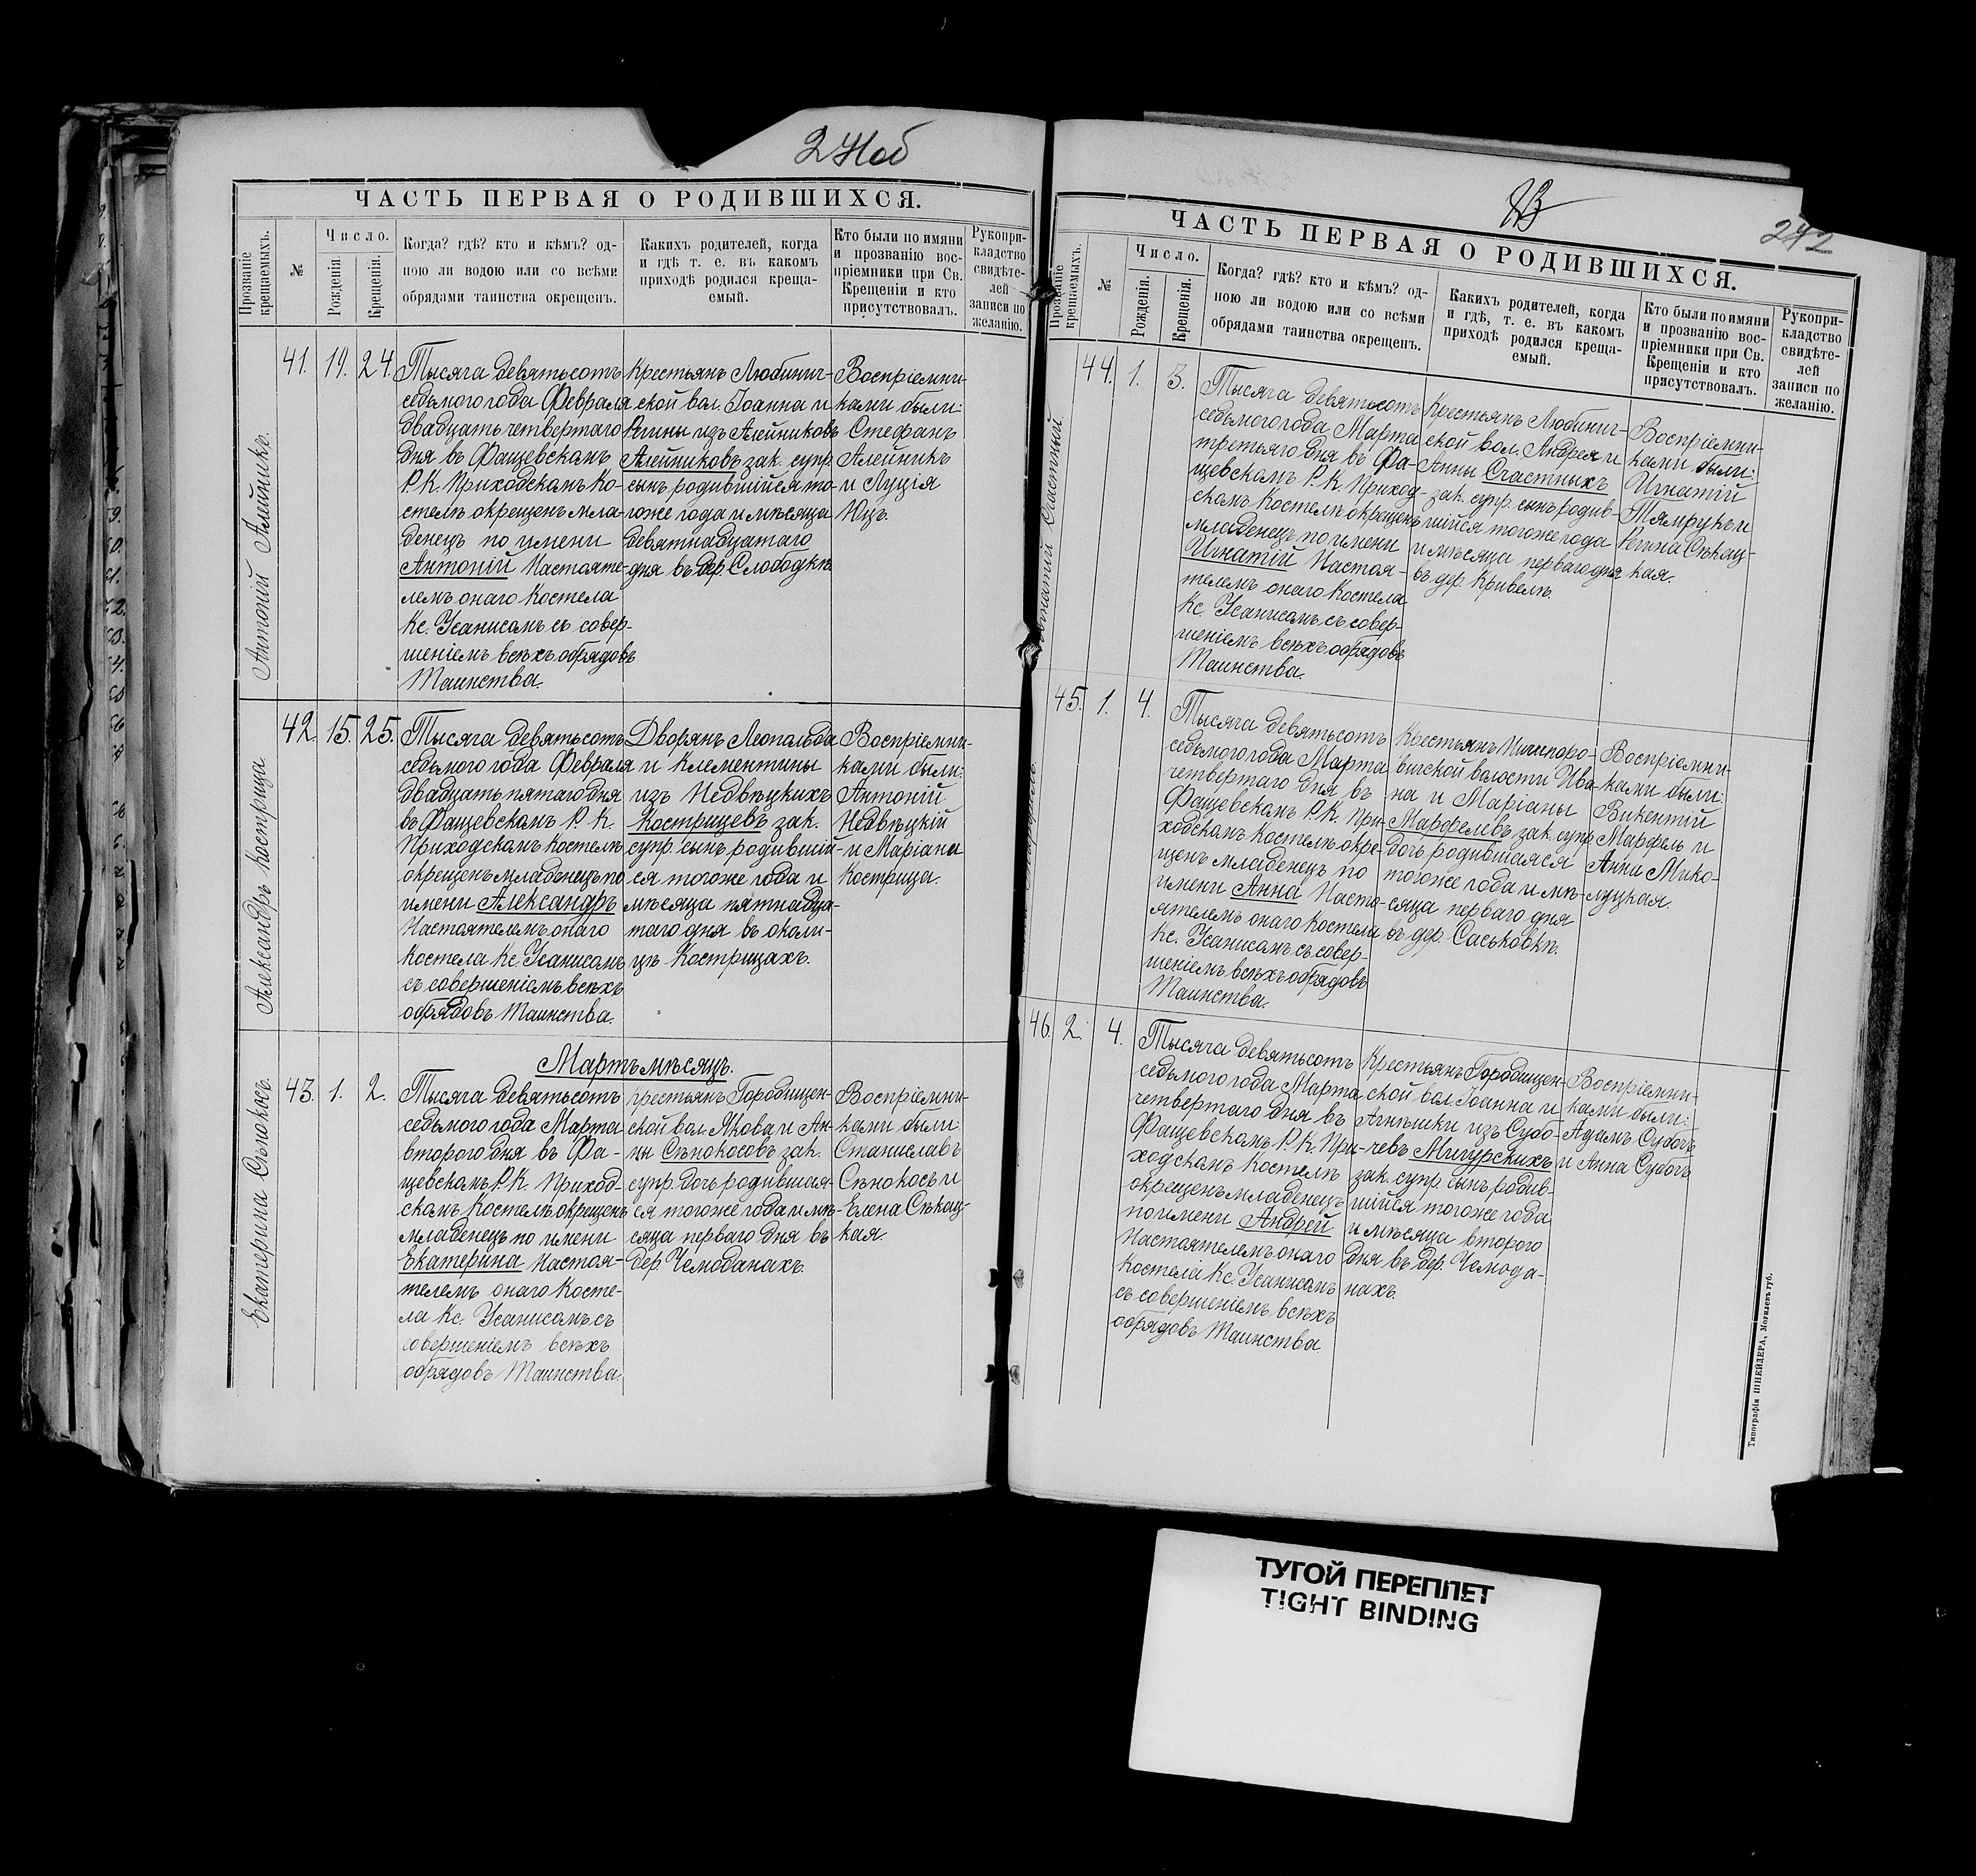 ЧАСТЬ ПЕРВАЯ О РОДИВШИХСЯ.
Прозваніе крещаемыхъ.
№
Число.
Рожденія
Крещенія.
Когда? гдѣ? кто и кѣмъ? од-
ною ли водою или со всѣми
обрядами таинства окрещенъ.
Какихъ родителей, когда
и гдѣ т. е. въ какомъ
приходѣ родился креща-
емый.
Кто были по имяни
и прозванію вос-
пріемники при Св.
Крещеніи и кто
присутствовалъ.
Рукопри-
кладство
свидѣте-
лей
записи по
желанію.
Антоній Алейникъ.
41.
19.
24.
Тысяча девятьсотъ
седьмого года Февраля
двадцать четвертаго
дня въ Фащевскомъ
Р. К. Приходскомъ Ко-
стелѣ окрещенъ мла-
денецъ по имени
Антоній Настояте-
лемъ онаго Костела
Кс. Усанисомъ съ совер-
шеніемъ всѣхъ обрядовъ
Таинства.
Крестьянъ Любинич-
ской вол. Іоанна и
Регины изъ Алейниковъ
Алейниковъ зак. супр.
сынъ родившійся то-
гоже года и мѣсяца
девятнадцатаго
дня въ дер. Слободкѣ
Воспріемни-
ками были:
Стефанъ
Алейникъ
и Луція
Юцъ.
Александръ Кострица
42.
15.
25.
Тысяча девятьсотъ
седьмого года Февраля
двадцать пятаго дня
въ Фащевскомъ Р. К.
Приходскомъ Костелѣ
окрещенъ младенецъ по
имени Александръ
Настоятелемъ онаго
Костела Кс. Усанисомъ
съ совершеніемъ всѣхъ
обрядовъ Таинства.
Дворянъ Леопольда
и Клементины
изъ Недвѣцкихъ
Кострицевъ зак.
супр. сынъ родившій-
ся тогоже года и
мѣсяца пятнадца-
таго дня въ околи-
цѣ Кострицахъ.
Воспріемни-
ками были:
Антоній
Недвѣцкій
и Маріана
Кострица.
Мартъ мѣсяцъ.
Екатерина Сѣнокосъ.
43.
1.
2.
Тысяча девятьсотъ
седьмого года Марта
второго дня въ Фа-
щевскомъ Р. К. Приход-
скомъ Костелѣ окрещенъ
младенецъ по имени
Екатерина Настоя-
телемъ онаго Косте-
ла Кс. Усанисомъ съ
совершеніемъ всѣхъ
обрядовъ Таинства.
Крестьянъ Городищен-
ской вол. Якова и Ан-
ны Сѣнокосовъ зак.
супр. дочь родившая-
ся тогоже года и мѣ-
сяца перваго дня въ
дер. Чемоданахъ
Воспріемни-
ками были:
Станиславъ
Сѣнокосъ и
Елена Сѣкац-
кая.
242
ЧАСТЬ ПЕРВАЯ О РОДИВШИХСЯ.
Прозваніе крещаемыхъ.
№
Число.
Рожденія.
Крещенія.
Когда? гдѣ? кто и кѣмъ? од-
ною ли водою или со всѣми
обрядами таинства окрещенъ.
Какихъ родителей, когда
и гдѣ, т. е. въ какомъ
приходѣ родился креща-
емый.
Кто были по имяни
и прозванію вос-
пріемники при Св.
Крещеніи и кто
присутствовалъ.
Рукопри-
кладство
свидѣте-
лей
записи по
желанію.
Игнатій Счастный.
44.
1.
3.
Тысяча девятьсотъ
седьмого года Марта
третьяго дня въ Фа-
щевскомъ Р. К. Приход-
скомъ Костелѣ окрещенъ
младенецъ по имени
Игнатій Настоя-
телемъ онаго Костела
Кс. Усанисомъ съ совер-
шеніемъ всѣхъ обрядовъ
Таинства.
Крестьянъ Любинич-
ской вол. Андрея и
Анны Счастныхъ
зак. супр. сынъ родив-
шійся тогоже года
и мѣсяца перваго дня
въ дер. Кривелѣ.
Воспріемни-
ками были:
Игнатій
Тямрукъ и
Регина Сѣкац-
кая.
45.
1.
4.
Тысяча девятьсотъ
седьмого года Марта
четвертаго дня въ
Фащевскомъ Р. К. При-
ходскомъ Костелѣ окре-
щенъ младенецъ по
имени Анна Насто-
ятелемъ онаго Костела
Кс. Усанисомъ съ совер-
шеніемъ всѣхъ обрядовъ
Таинства.
вичской волости Ива-
на и Маріаны
Марфелевъ зак. супр.
дочь родившаяся
тогоже года и мѣ-
сяца перваго дня
въ дер. Саськовкѣ.
Воспріемни-
ками были:
Викентій
Марфель и
Анна Мико-
луцкая.
46.
2.
4.
Тысяча девятьсотъ
седьмого года Марта
четвертаго дня въ
Фащевскомъ Р. К. При-
ходскомъ Костелѣ
окрещенъ младенецъ
по имени Андрей
Настоятелемъ онаго
Костела Кс. Усанисомъ
съ совершеніемъ всѣхъ
обрядовъ Таинства.
Крестьянъ Городищен-
ской вол. Іоанна и
Агнѣшки изъ Субо-
чевъ Мигурскихъ
зак. супр. сынъ родив-
шійся тогоже года
и мѣсяца второго
дня въ дер. Чемода-
нахъ.
Воспріемни-
ками были:
Адамъ Субочъ
и Анна Субочъ
Типографія ШНЕЙДЕРА, Могилевъ губ.
ТУГОЙ ПЕРЕПЛЕТ
TIGHT BINDING